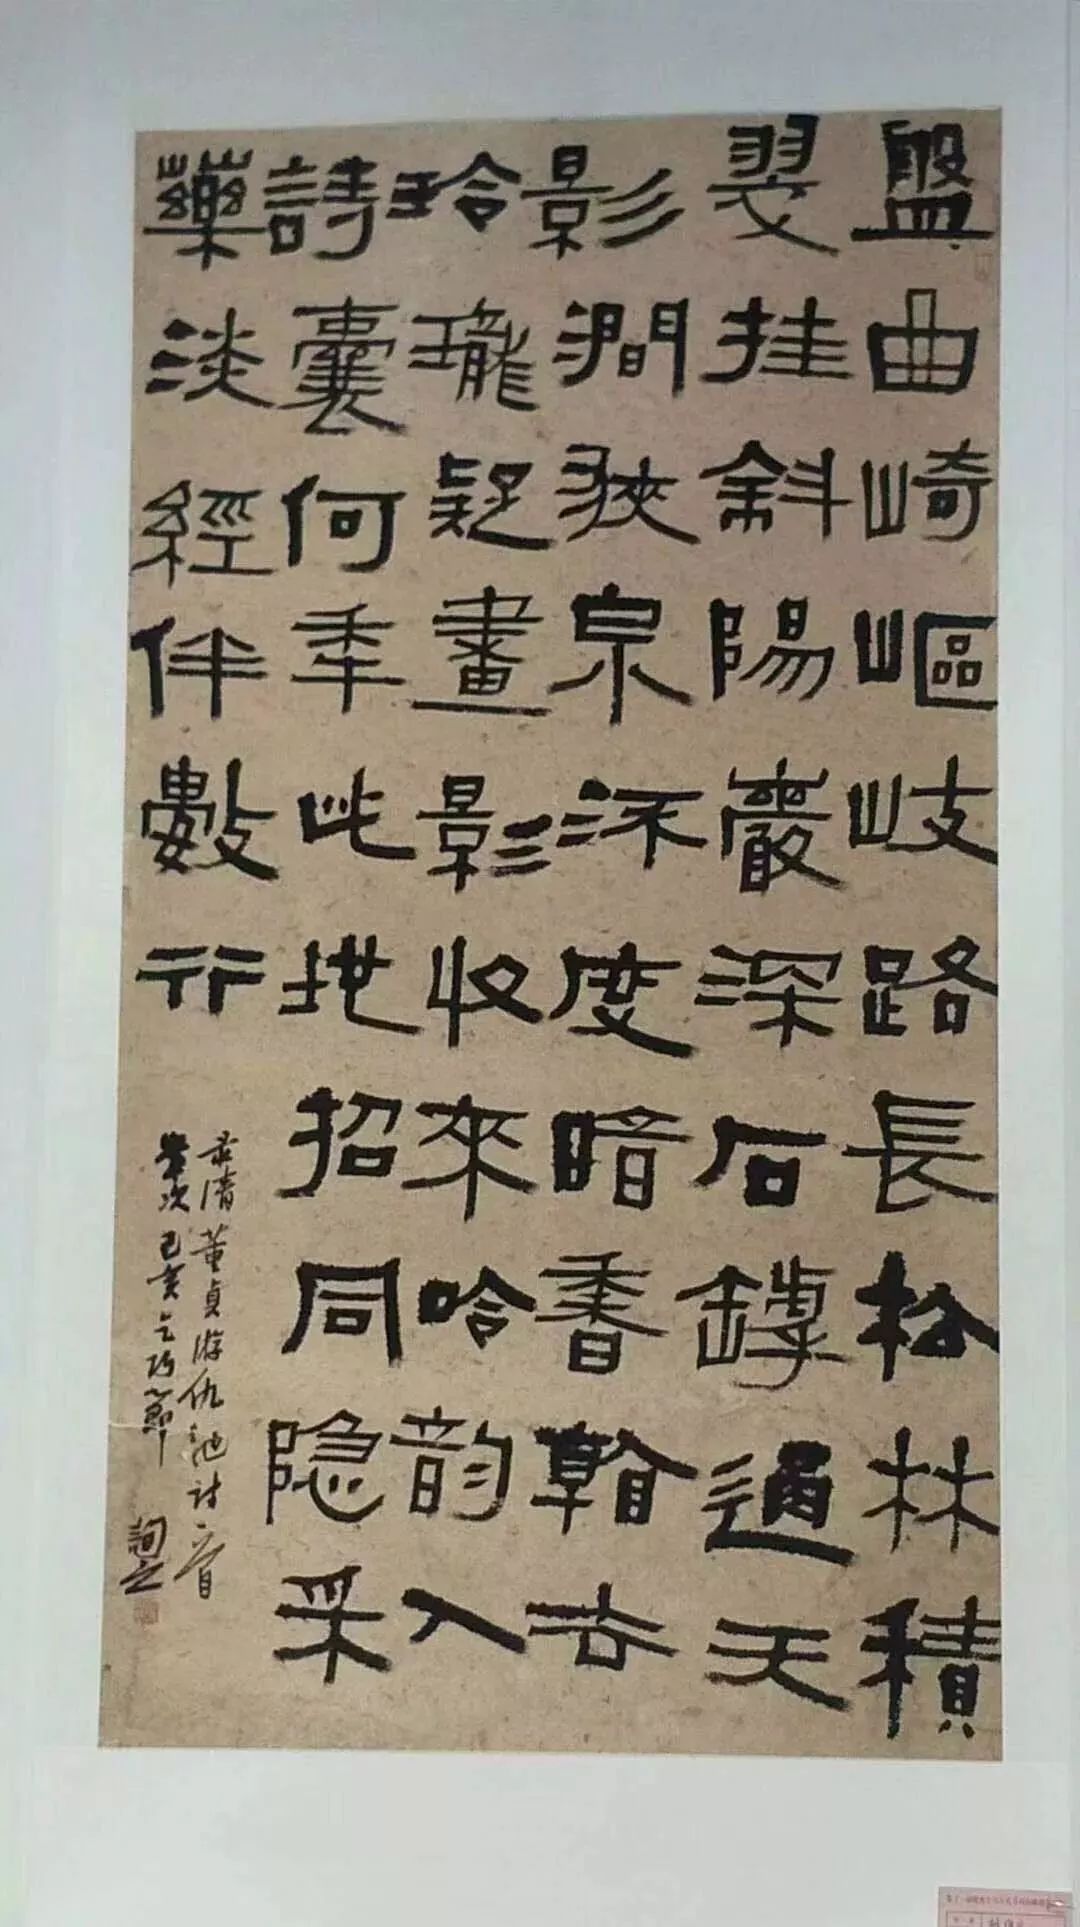 盤曲崎嶇岐路長松林積
翠挂斜陽巖深石罅通天
影澗狹泉度暗香翰去
玲瓏疑畫影收來吟韵入
詩囊何年此地招同隐采
藥淡經伴數行
录清董貞游仇池詩一首
歲次己亥乞巧節 詢之